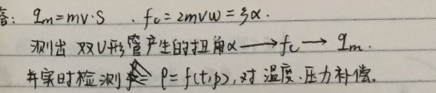 答: qm=mv·S . fc=2mvw=ξα.
测出 双U形管产生的扭角α→fc→qm.
并实时检测 ρ=f(t,p),对 温度.压力补偿.